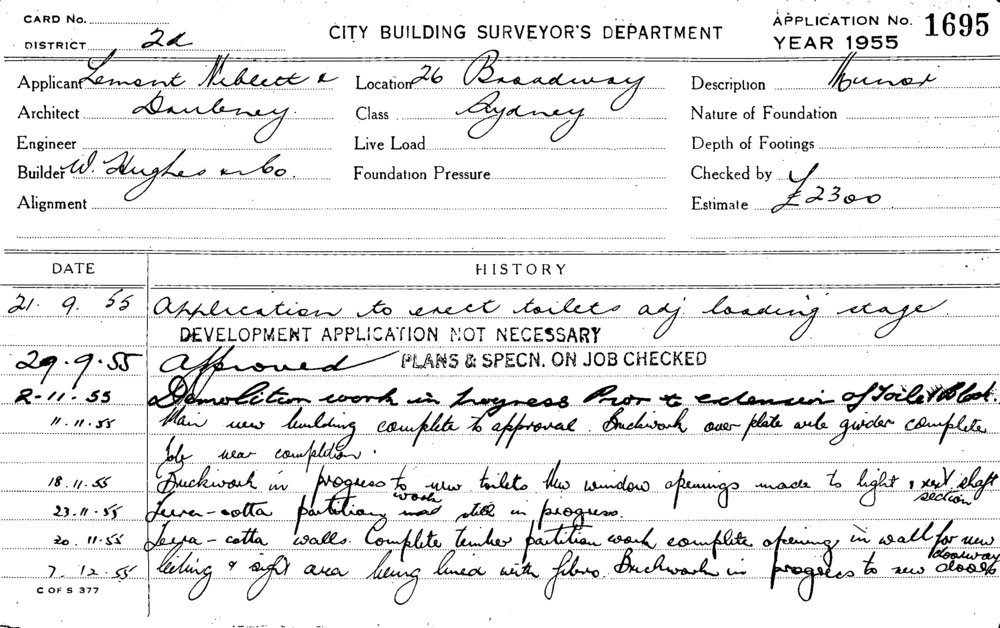 CARD No.
DISTRICT 2d
CITY BUILDING SURVEYOR'S DEPARTMENT
APPLICATION No. 1695
YEAR 1955
Applicant Lemont Niblett &
Location 26 Broadway
Description Minor
Architect Daubney.
Class Sydney
Nature of Foundation
Engineer
Live Load
Depth of Footings
Builder W. Hughes & Co.
Foundation Pressure
Checked by
Alignment
Estimate £2300
DATE
HISTORY
21. 9. 55 Application to erect toilets adj loading stage.
DEVELOPMENT APPLICATION NOT NECESSARY
29.9.55 Approved PLANS & SPECN. ON JOB CHECKED
2-11-55 Demolition work in progress Prior to extension of Toilet Block.
11.11.55 Main new building complete to approval. Brickwork over plate girder complete
Job near completion.
18.11.55 Brickwork in progress to new toilets New window openings made to light & vent shaft
section
23.11.55 Terra-cotta partition work still in progress.
11.55 Terra-cotta walls. Complete timber partition work complete opening in wall for new
doorway
7. 12. 55 Ceiling & area being lined with fibro. Brickwork in progress to new
C OF S 377